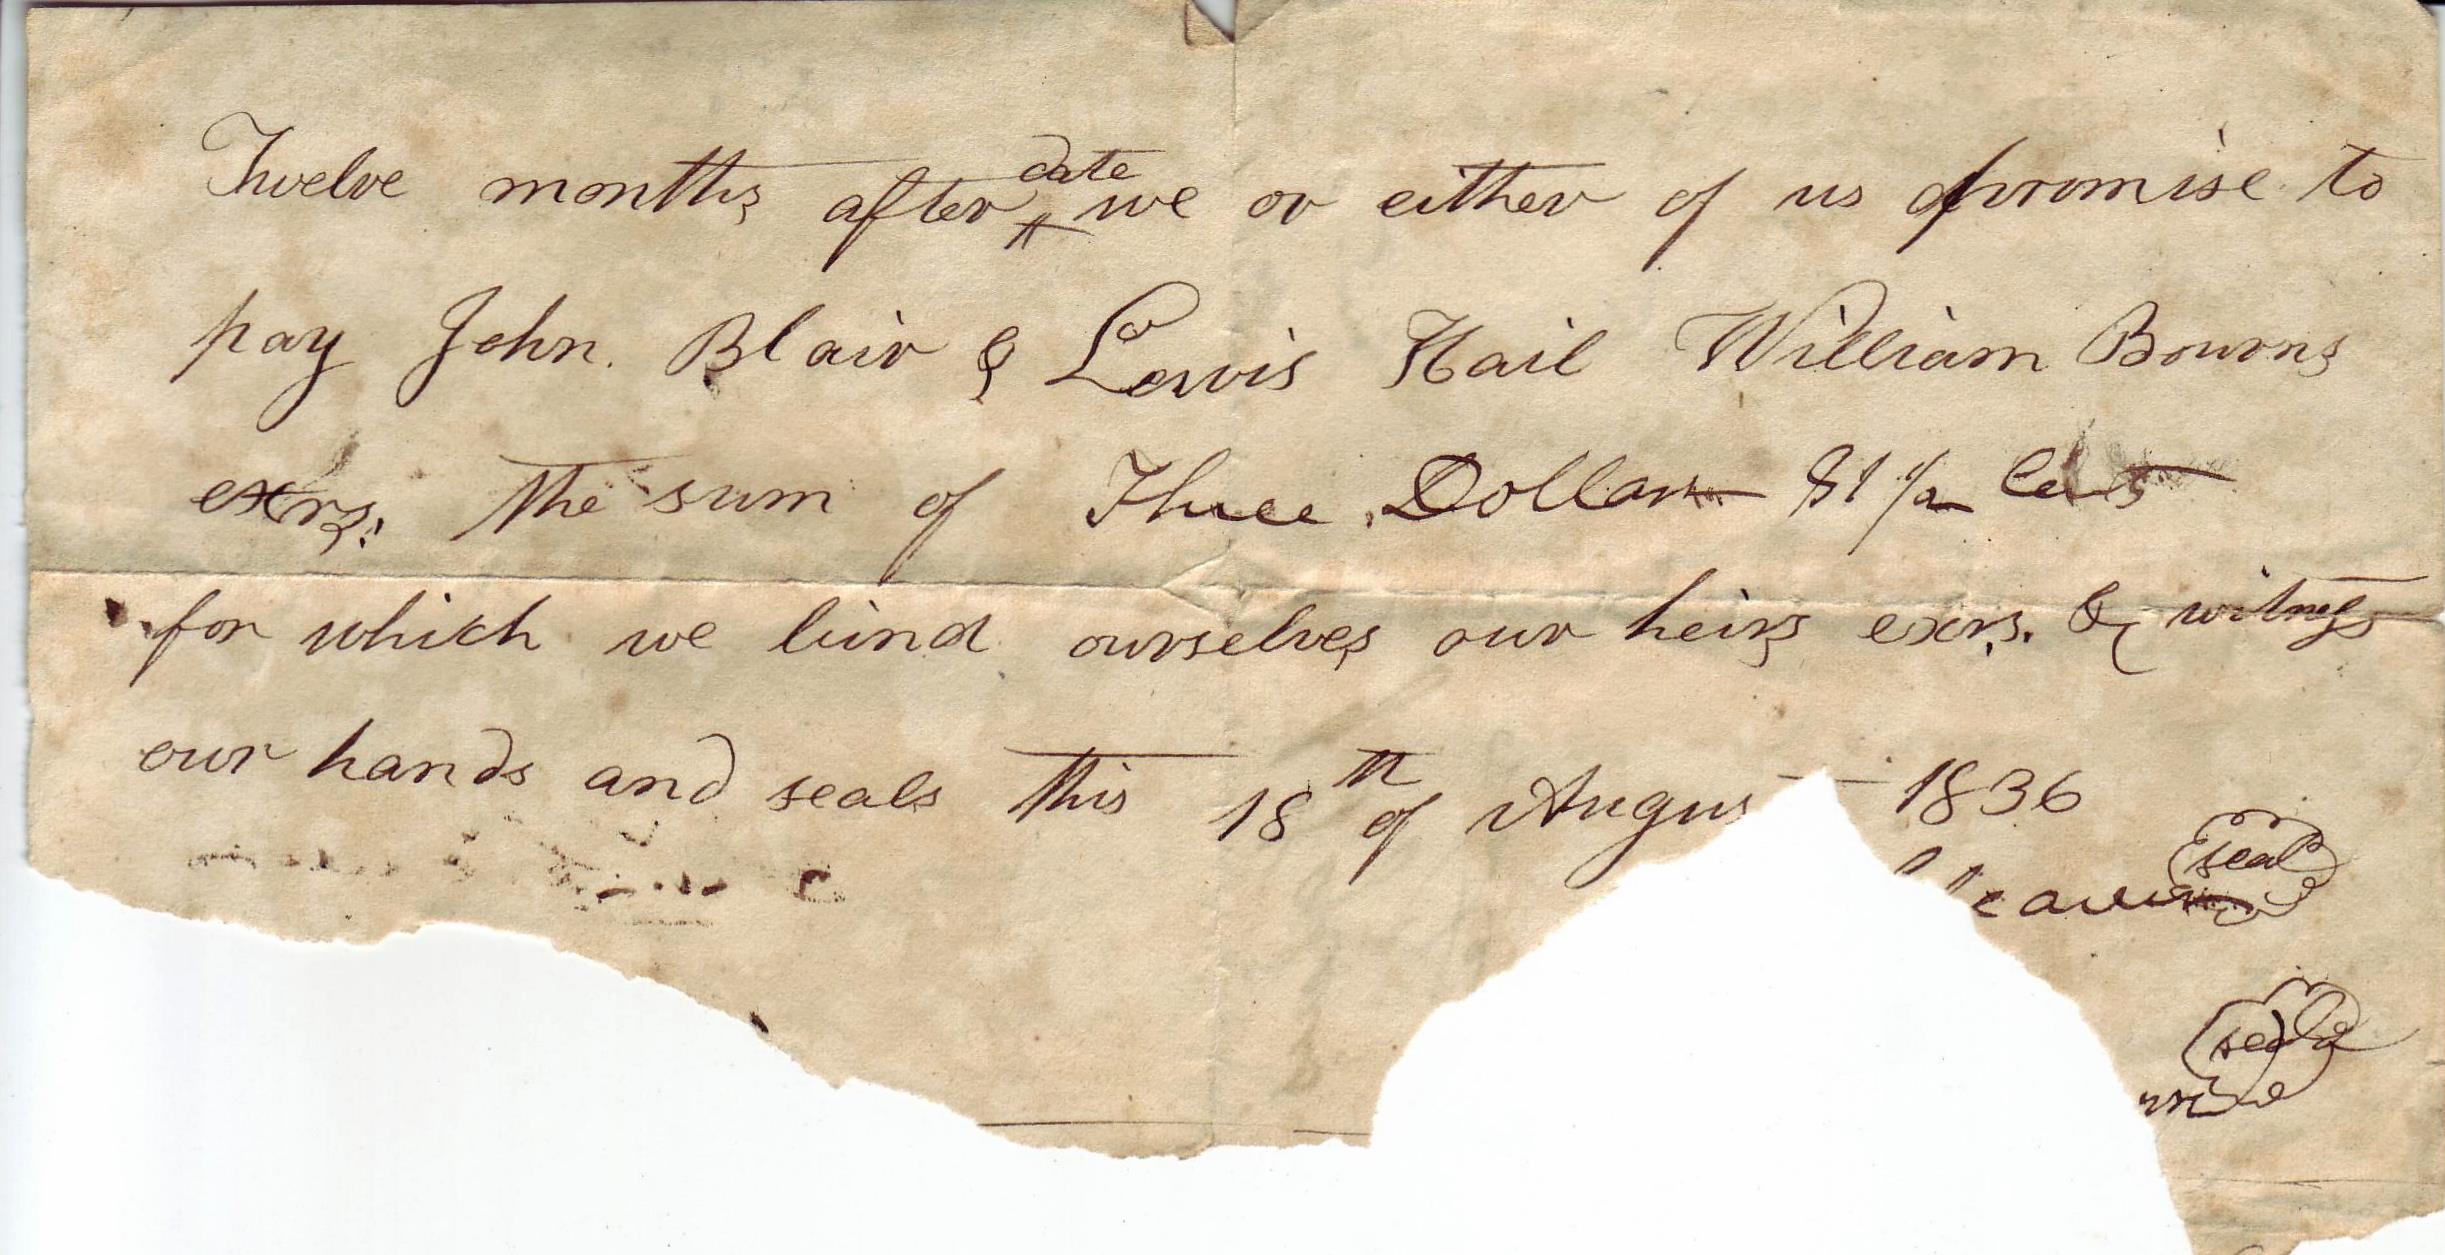 Twelve months after date we or either of us promise to
pay John. Blair & Lewis Hail William Bourns
exrs. the sum of Three Dollars 81 1/2 Cents
for which we bind ourselves our heirs exrs. & witness
our hands and seals this 18th of Augus 1836
seal
seal